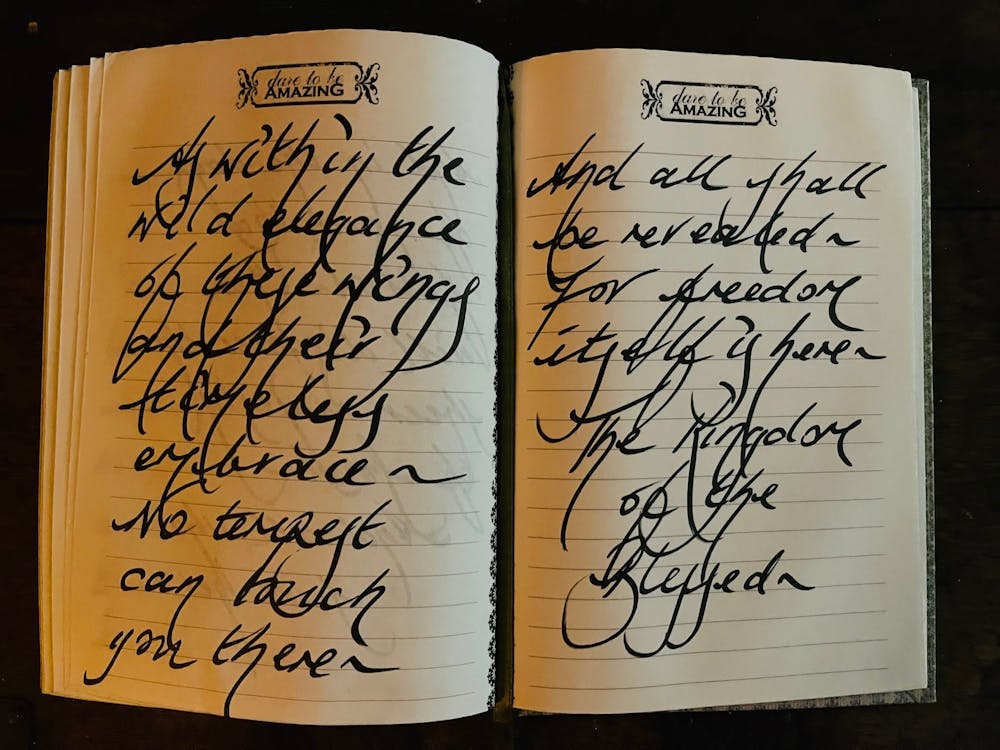 dare to be
AMAZING
As within the
wild elegance
of these wings
and their
timeless
embrace ~
No tempest
can touch
you there ~
dare to be
AMAZING
And all shall
be revealed ~
For freedom
itself is here ~
The Kingdom
of the
Blessed ~